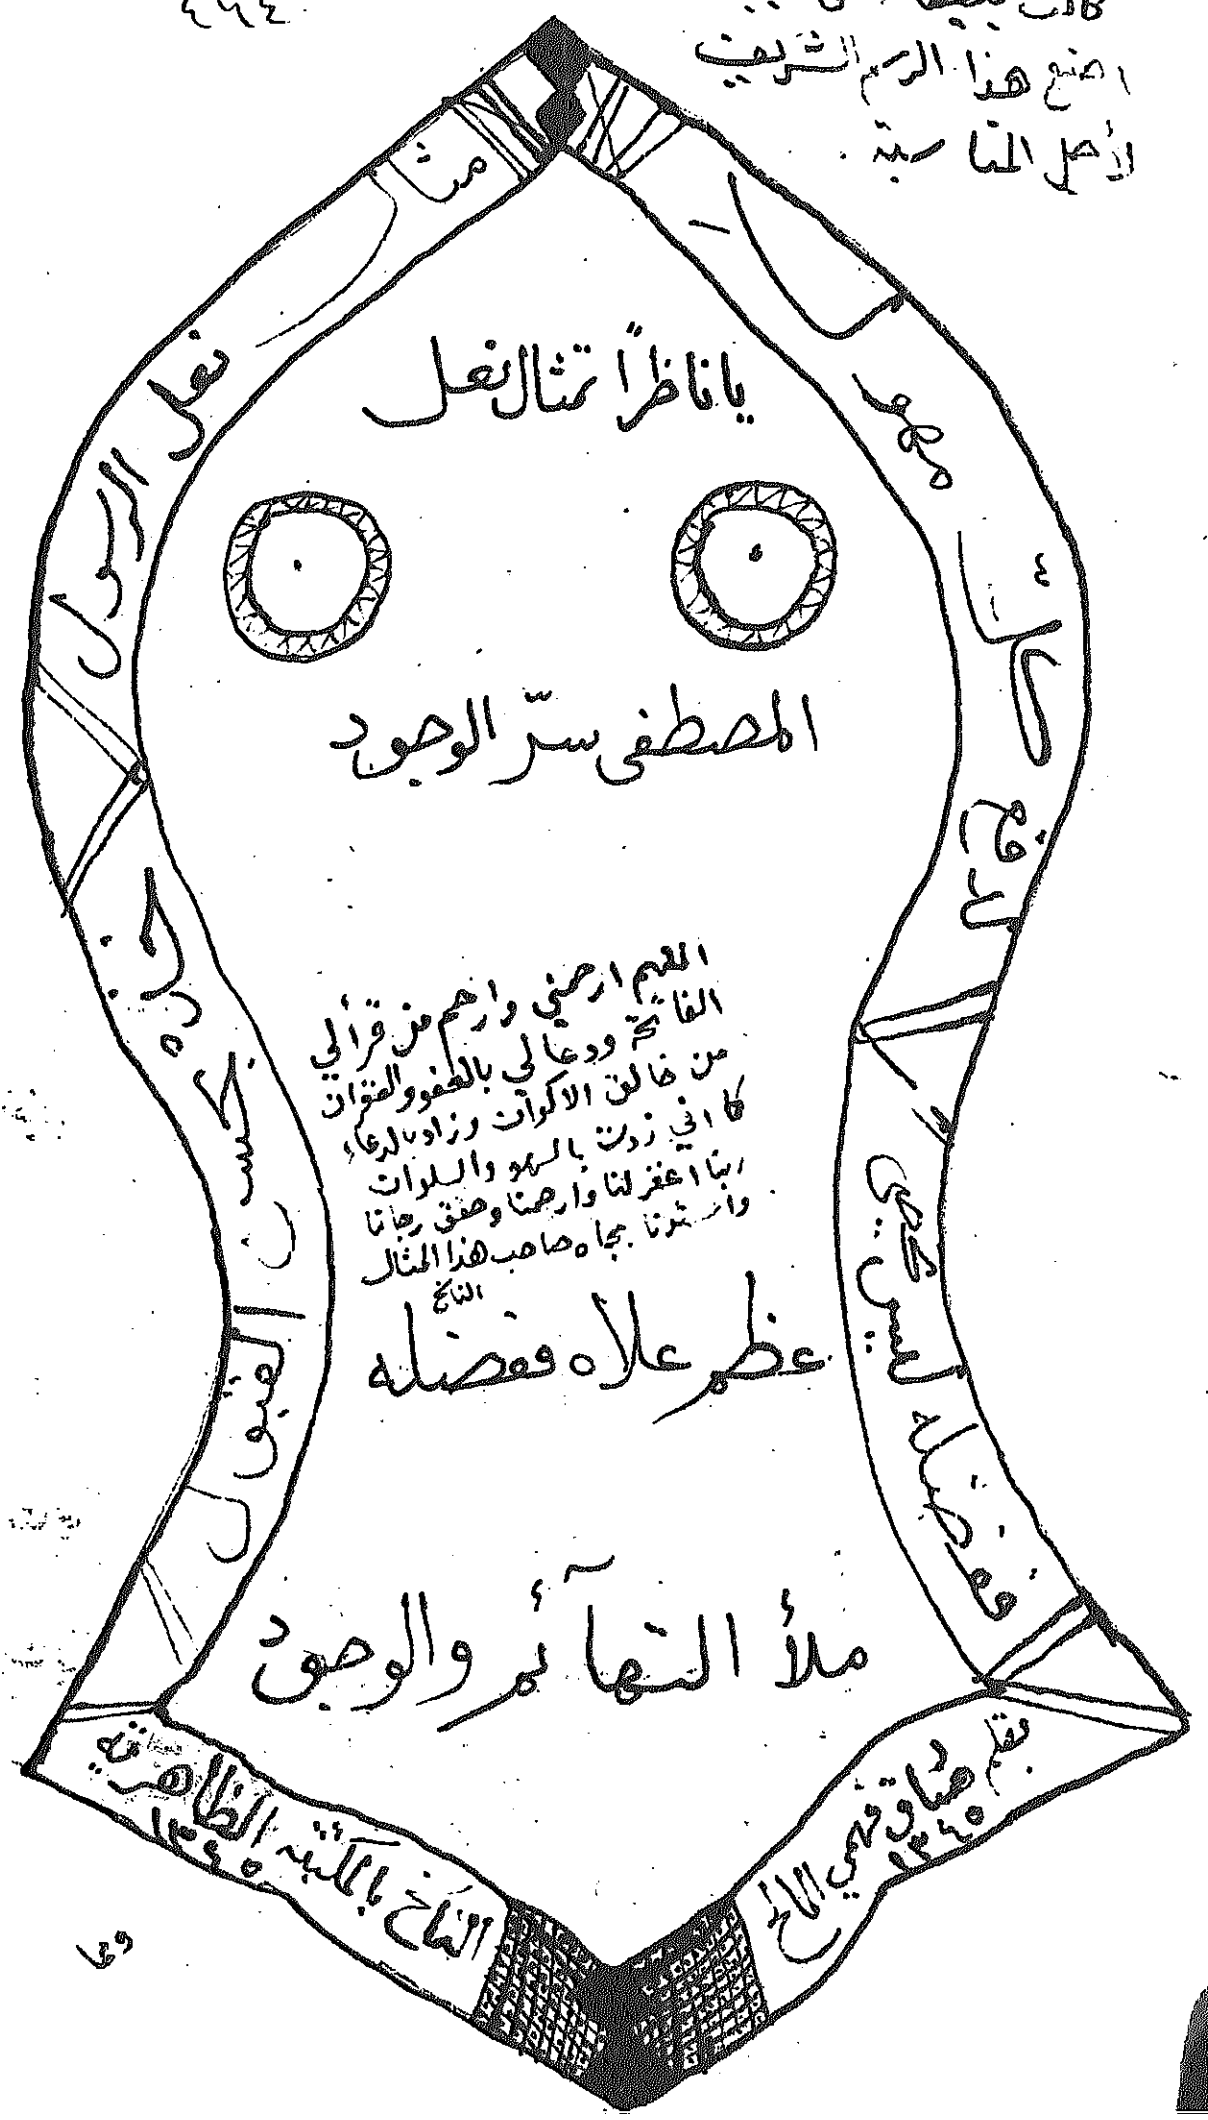 ٤٩٤
اصنع هذا الرسم الشريف
لأجل المناسبة
مثال
نعل الرسول
خزه
بحسن القبول
يا ناظرًا تمثال نعل
المصطفى سرّ الوجود
اللهم ارحمني وارحم من قرأ لي
الفاتحة ودعا لي بالعفو والغفران
من خالق الاكوان وزاد بالدعاء
كما اني زدت بالسهو والسلوات
ربنا اغفر لنا وارحمنا وحقق رجانا
واسترنا بجاه صاحب هذا المثال
الناسخ
عظم علاه ففضله
ملأ التهآئم والوجود
لدفع
ففضله ليس يحصى
بقلم صادق فهمي المالح
١٣٤٥
الناسخ بالمكتبة الظاهرية
١٣٤٥